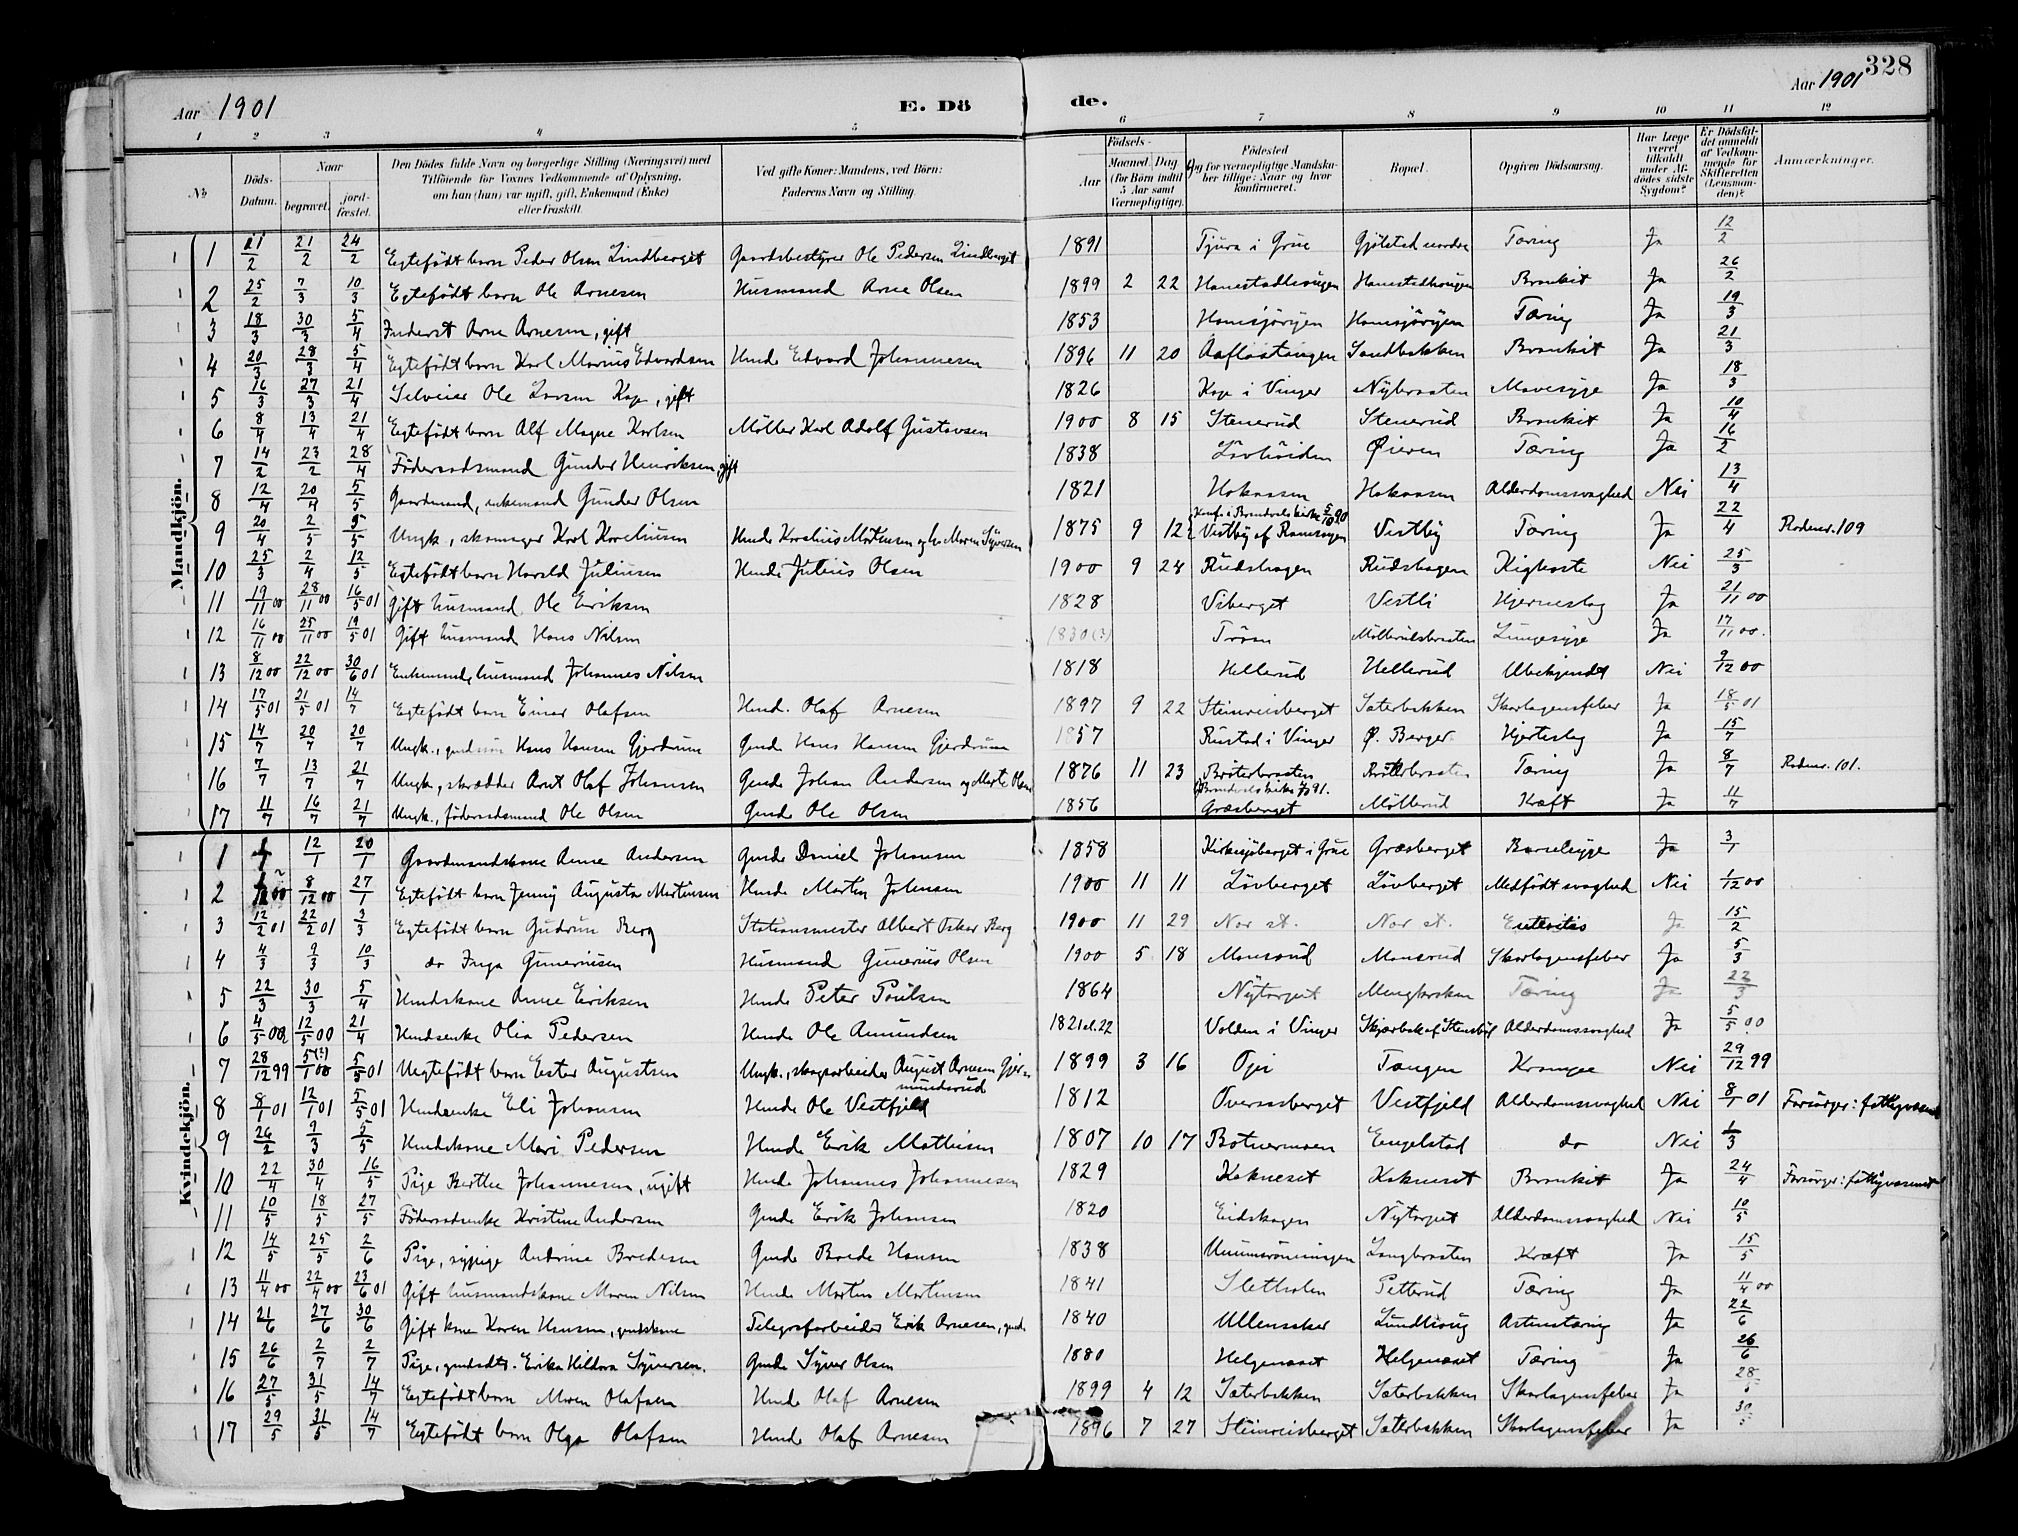 328
Aar 1901
E. Dö
de.
Aar 1901
1 2 3 4 5 6 7 8 9 10 11 12
No.
Döds-Datum.
Naar
begravet.
jord-fæstet.
Den Dödes fulde Navn og borgerlige Stilling (Næringsvei) med Tilföiende for Voxnes Vedkommende af Oplysning, om han (hun) var ugift, gift, Enkemand (Enke) eller fraskilt.
Ved gifte Koner: Mandens, ved Börn: Faderens Navn og Stilling.
Födsels-
Aar
Maaned. Dag
(for Börn indtil 5 Aar samt Værnepligtige).
Födested
og for værnepligtige Mandskaber tillige: Naar og hvor konfirmeret.
Bopæl.
Opgiven Dödsaarsag.
Har Læge været tilkaldt under Afdödes sidste Sygdom?
Er Dödsfaldet anmeldt af Vedkommende for Skifteretten (Lensmanden)?
Anmærkninger.
Mandkjön.
1 21/2 21/2 24/2 Egtefødt barn Peder Olsen Lindberget Gaardsbestyrer Ole Pedersen Lindberget 1891 Tjura i Grue Gjölstad nordre Tæring Ja 12/2
2 25/2 7/3 10/3 Egtefødt barn Ole Arnesen Husmand Arne Olsen 1899 2 22 Bronkit Ja 26/2
3 18/3 30/3 5/4 Inderst Arne Arnesen, gift 1853 Tæring Ja 19/3
4 20/3 28/3 5/4 Egtefødt barn Karl Marius Edvardsen Hmd. Edvard Johannesen 1896 11 20 Sandbakken Bronkit Ja 21/3
5 16/3 27/3 21/4 Selveier Ole Larsen Kage, gift 1826 Kage i Vinger Nybraaten Mavesyge Ja 18/3
6 8/4 13/4 21/4 Egtefødt barn Alf Magne Karlsen Møller Karl Adolf Gustavsen 1900 8 15 Stenerud Stenerud Bronkit Ja 10/4
7 14/2 23/2 28/4 Föderaadsmand Gunder Henriksen, gift 1838 Øieren Tæring Ja 16/2
8 12/4 20/4 5/5 Gaardmand, enkemand Gunder Olsen 1821 Hokaasen Hokaasen Alderdomssvaghed Nei 13/4
9 20/4 2/5 5/5 Ungk., skomager Karl Korneliusen 1875 9 12 Konf. i Brandvals kirke 5/10 90 Vestby Tæring Ja 22/4 Rodenr. 109
10 25/3 2/4 12/5 Egtefødt barn Harald Juliusen Hmd. Julius Olsen 1900 9 24 Rudshagen Rudshagen Kighoste Nei 25/3
11 19/11 00 28/11 00 16/5 01 Gift husmand Ole Eriksen 1828 Viberget Vestli Hjerneslag Ja 21/11 00
12 16/11 00 25/11 00 19/5 01 Gift husmand Hans Nilsen 1830(3) Lungesyge Ja 17/11 00.
13 8/12 00 22/12 00 30/6 01 Enkemand, husmand Johannes Nilsen 1818 Hellerud Hellerud Ubekjendt Nei 9/12 00
14 17/5 01 21/5 01 14/7 Egtefødt barn Einar Olafsen Hmd. Olaf Arnesen 1897 9 22 Steinreisberget Sæterbakken Skarlagensfeber Ja 18/5 01
15 14/7 20/7 20/7 Ungk., gmdssøn Hans Hansen Gjerdrum Gmd. Hans Hansen Gjerdrum 1857 Rustad i Vinger Ø. Berger Hjerteslag Ja 15/7
16 7/7 13/7 21/7 Ungk., skrædder Arnt Olaf Johansen Gmd. Johan Andersen og Marte Olsen 1876 11 23 Bröterbraaten Bröterbraaten Tæring Ja 8/7 Rodenr. 101.
17 11/7 16/7 21/7 Ungk., föderaadsmand Ole Olsen Gmd. Ole Olsen 1856 Græsberget Møllerud Kræft Ja 11/7
Kvindekjön.
1 12/1 20/1 Gaardmandskone Anne Andersen Gmd. Daniel Johansen 1858 Kirkesjöberget i Grue Græsberget Barselsyge Ja 3/1
2 8/12 00 27/1 Egtefødt barn Jenny Augusta Martinsen Hmd. Martin Johansen 1900 11 11 Lövberget Lövberget Medfödt svaghed Nei 1/12 00
3 12/2 01 22/2 01 3/3 Egtefødt barn Gudrun Berg Stationsmester Albert Oskar Berg 1900 11 29 Nor st. Nor st. Enteritis Ja 15/2
4 4/3 9/3 10/3 do Inga Gunerisen Husmand Gunerius Olsen 1900 5 18 Monsrud Monsrud Skarlagensfeber Ja 5/3
5 22/3 30/3 5/4 Hmdskone Anne Eriksen Hmd. Peter Poulsen 1864 Nytorpet Tæring Ja 22/3
6 4/5 00 12/5 00 21/4 Hmdsenke Olia Pedersen Hmd. Ole Amundsen 1821 el. 22 Volden i Vinger Alderdomssvaghed Ja 5/5 00
7 28/12 99 5(?)/1 00 5/5 01 Uegtefødt barn Ester Augustsen Ungk., skogsarbeider August Arnesen Gjermundsrud 1899 3 16 Tangen Krampe Nei 29/12 99
8 8/1 01 12/1 01 5/5 01 Hmdsenke Eli Johansen Hmd. Ole Vestfjeld 1812 Overaasberget Vestfjeld Alderdomssvaghed Nei 8/1 01 Forsørger: fattigvæsenet
9 26/2 9/3 5/5 Hmdskone Mari Pedersen Hmd. Erik Mathisen 1807 10 17 Botnermoen Engelstad do Nei 1/3
10 22/4 30/4 16/5 Pige Berthe Johannesen, ugift Hmd. Johannes Johannesen 1829 Kokneset Kokneset Bronkit Ja 24/4 Forsørger: fattigvæsenet
11 10/5 18/5 27/5 Föderaadsenke Kristine Andersen Gmd. Erik Johansen 1820 Eidskogen Nytorpet Alderdomssvaghed Nei 10/5
12 14/5 25/5 2/6 Pige, sypige Andrine Bredesen Gmd. Brede Hansen 1838 Langbraaten Kræft Ja 15/5
13 11/4 00 22/4 00 23/6 01 Gift husmandskone Maren Nilsen Hmd. Martin Martinsen 1841 Sletholen Petterud Tæring Ja 11/4 00
14 21/6 27/6 30/6 Gift kone Karen Hansen, gmdskone Telegrafarbeider Erik Arnesen, gmd. 1840 Ullensaker Lundhaug Ja 22/6
15 26/6 2/7 2/7 Pige, gmdsdtr. Erika Hildora Syversen. Gmd. Syver Olsen 1880 Helgenæset Helgenæset Tæring Ja 26/6
16 27/5 31/5 14/7 Egtefødt barn Maren Olafsen Hmd. Olaf Arnesen 1899 4 12 Sæterbakken Sæterbakken Skarlagensfeber Ja 28/5
17 29/5 31/5 14/7 Egtefødt barn Olga Olafsen Hmd. Olaf Arnesen 1896 7 27 Steinreisberget Sæterbakken Skarlagensfeber Ja 30/5